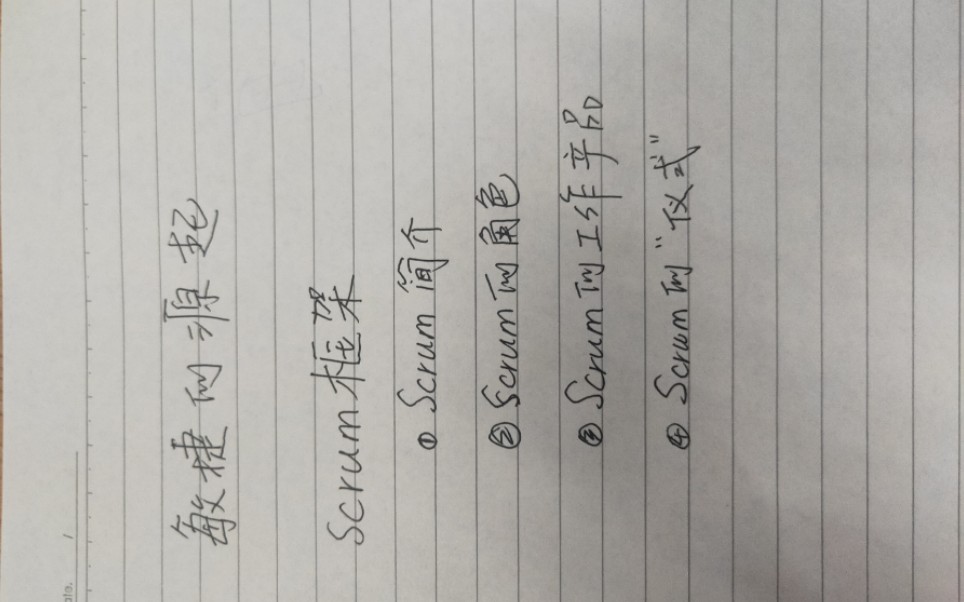 敏捷的源起
Scrum框架
① Scrum简介
② Scrum的角色
③ Scrum的工作产品
④ Scrum的“仪式”